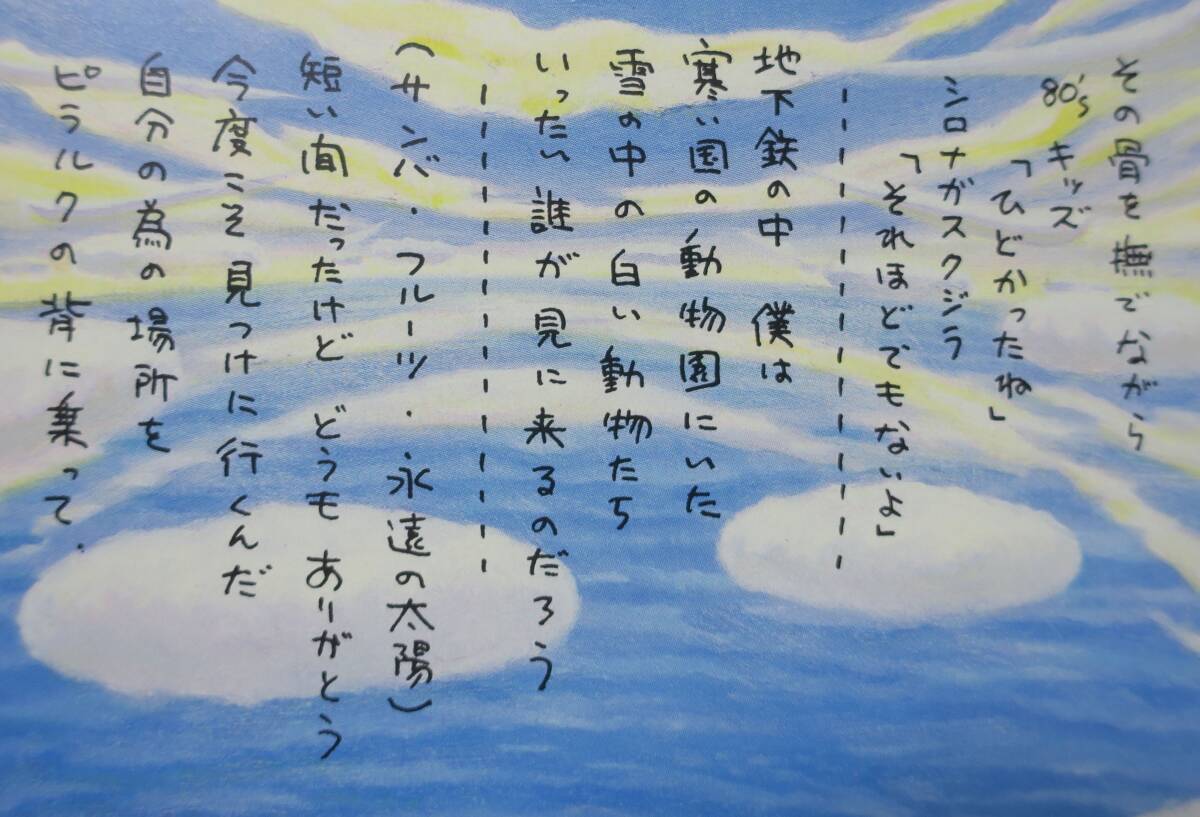 その骨を撫でながら
80'sキッズ
「ひどかったね」
シロナガスクジラ
「それほどでもないよ」
地下鉄の中　僕は
寒い国の動物園にいた
雪の中の白い動物たち
いったい誰が見に来るのだろう
(サンバ・フルーツ・永遠の太陽)
短い間だったけど　どうもありがとう
今度こそ見つけに行くんだ
自分の為の場所を
ピラルクの背に乗って.